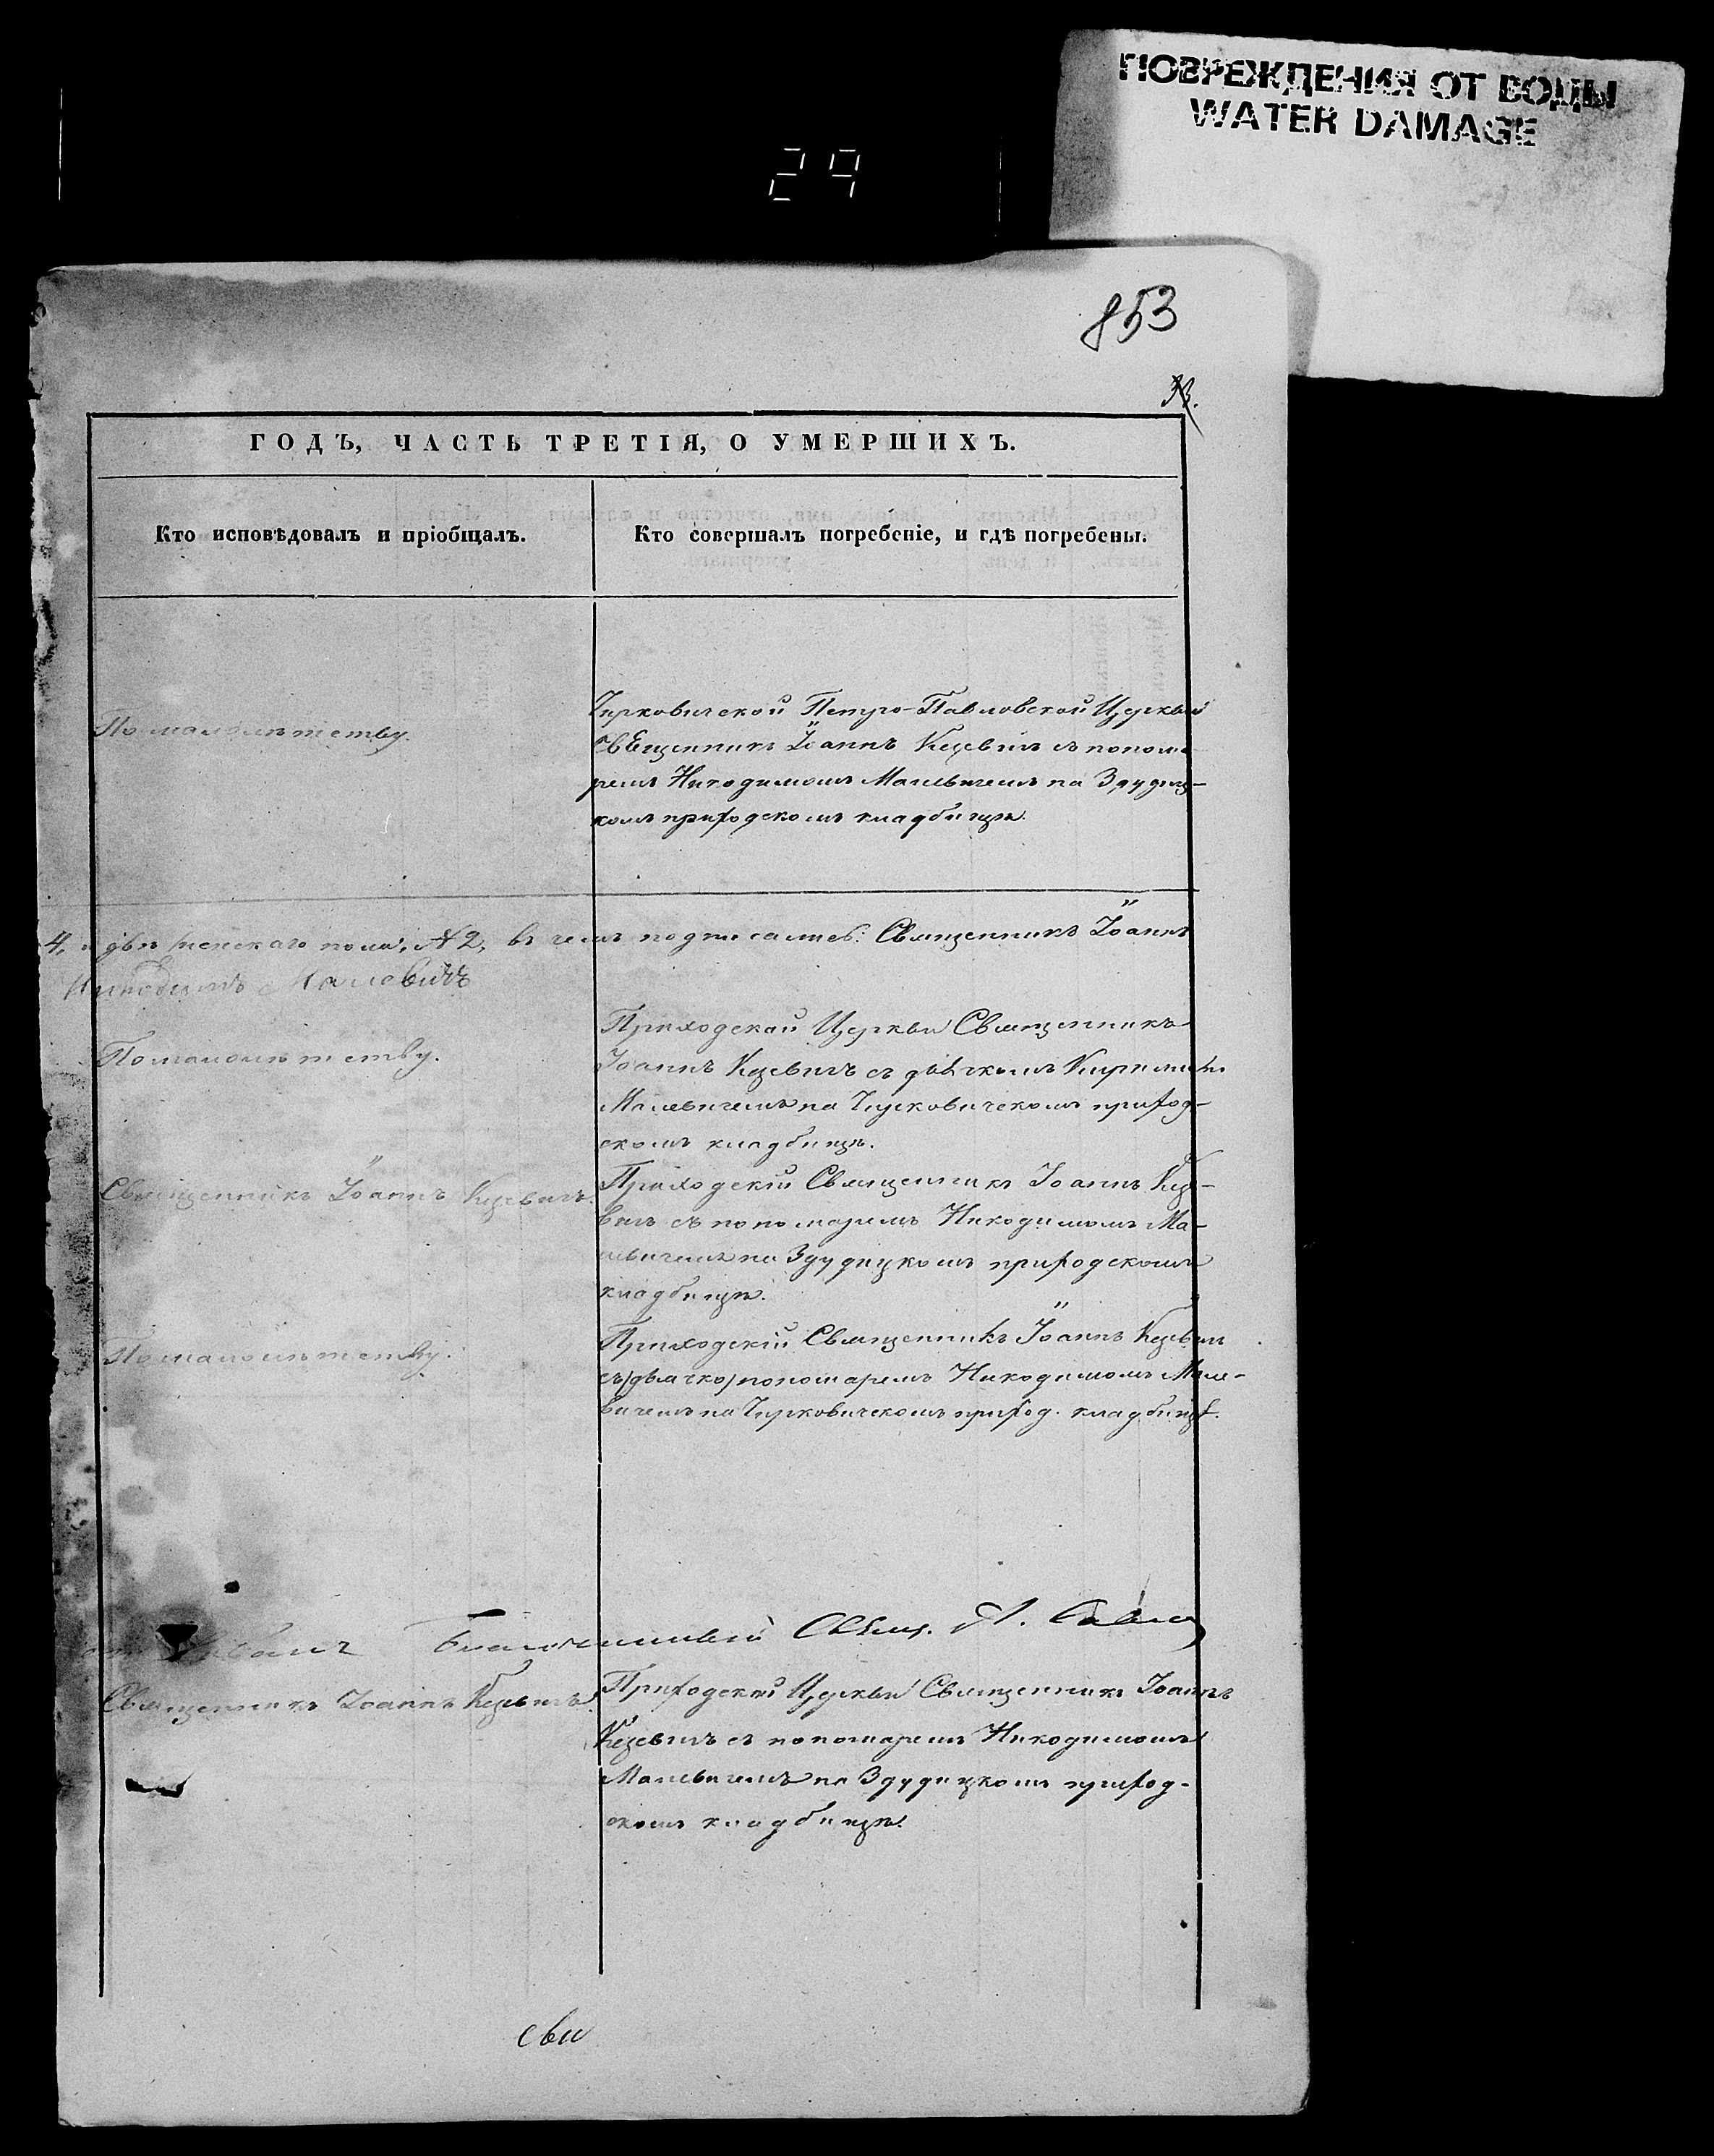 ПОВРЕЖДЕНИЯ ОТ ВОДЫ
WATER DAMAGE
29
853
33.
ГОДЪ, ЧАСТЬ ТРЕТІЯ, О УМЕРШИХЪ.
Кто исповѣдовалъ и пріобщалъ.
Кто совершалъ погребеніе, и гдѣ погребены.
По малолѣтству.
Чирковичской Петро-Павловской Церкви
Священникъ Іоаннъ Кцевичъ съ понома-
ремъ Никодимомъ Малевичемъ на Здудиц-
комъ приходскомъ кладбищѣ.
4, и двѣ женскаго пола, № 2, въ чемъ подписались: Священникъ Іоаннъ
Никодимъ Малевичъ
По малолѣтству.
Приходской Церкви Священникъ
Іоаннъ Кцевичъ съ дьячкомъ
Малевичемъ на Чирковичскомъ приход-
скомъ кладбищѣ.
Священникъ Іоаннъ Кцевичъ.
Приходскій Священникъ Іоаннъ Кце-
вичъ съ пономаремъ Никодимомъ Ма-
левичемъ на Здудицкомъ приходскомъ
кладбищѣ.
По малолѣтству.
Приходскій Священникъ Іоаннъ Кцевичъ
съ (дьячко) пономаремъ Никодимомъ Мале-
вичемъ на Чирковичскомъ приход. кладбищѣ.
Благочинный Свящ.
Священникъ Іоаннъ Кцевичъ.
Приходской Церкви Священникъ Іоаннъ
Кцевичъ съ пономаремъ Никодимомъ
Малевичемъ на Здудицкомъ приход-
скомъ кладбищѣ.
сви